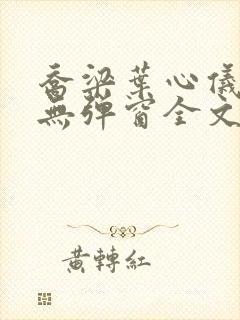 喬梁葉心儀
無彈窗全文
黃轉紅